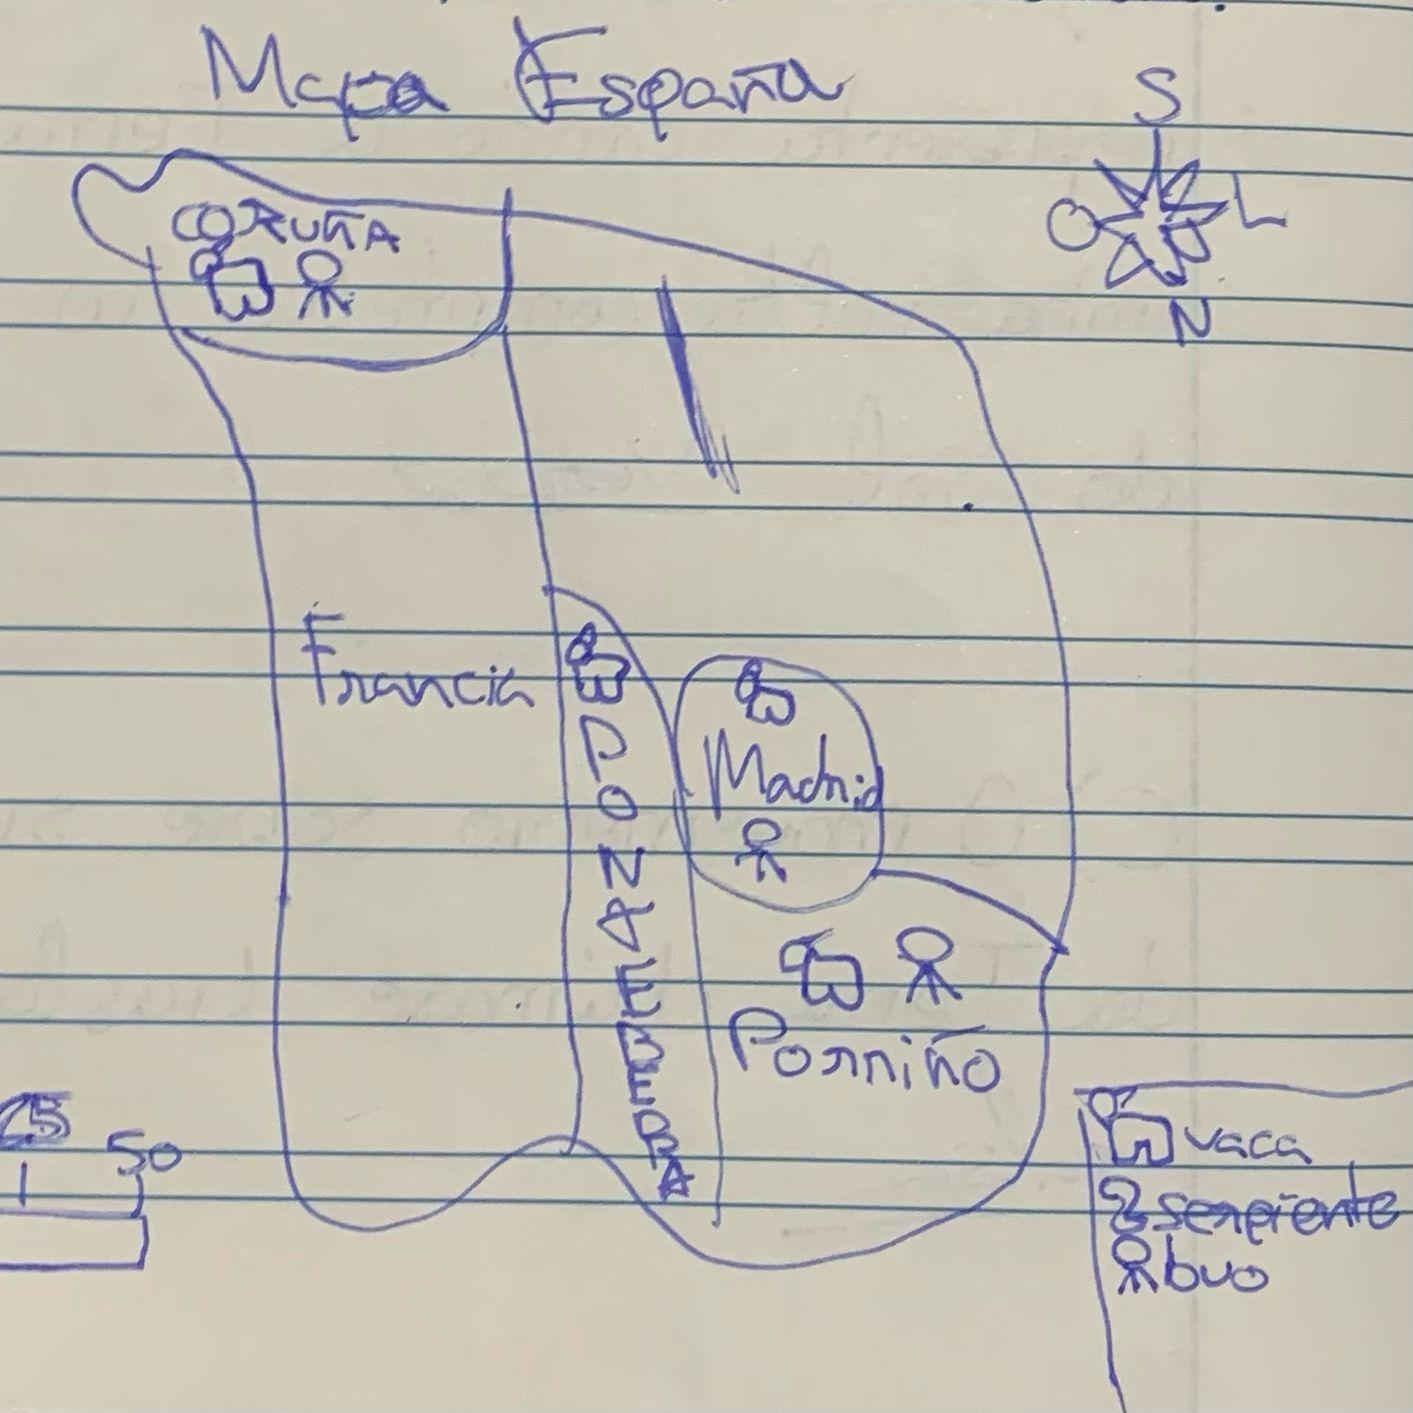 Mapa España
S
O L
N
CORUÑA
Francia
PONAEBEBA
Madrid
Ponniño
25 50
vaca
serpiente
buo